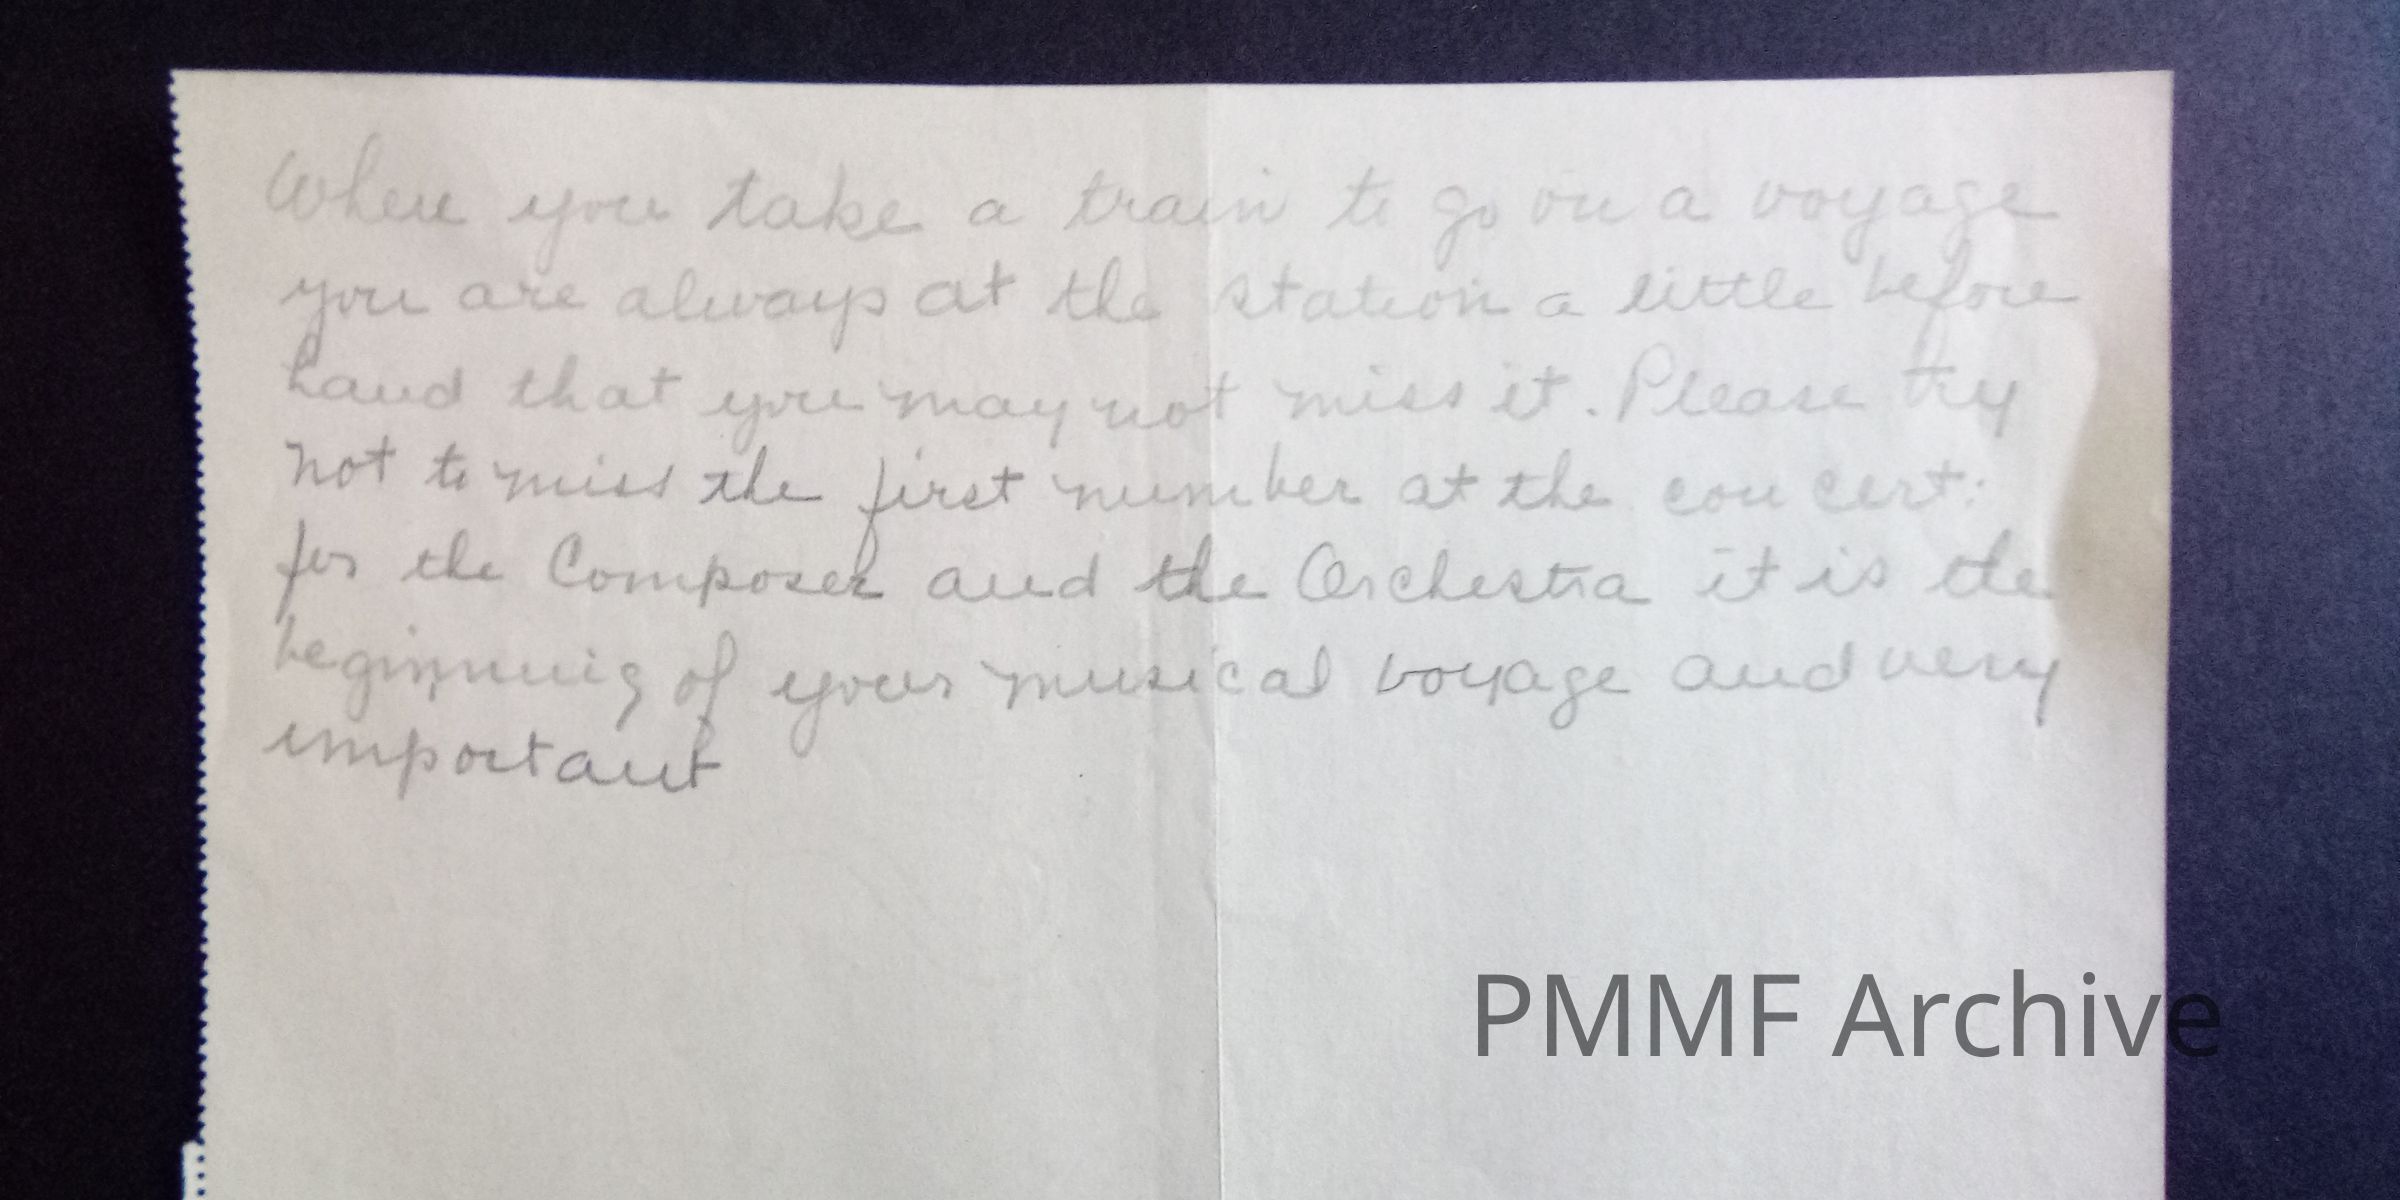 When you take a train to go on a voyage
you are always at the station a little before
hand that you may not miss it. Please try
not to miss the first number at the concert:
for the Composer and the Orchestra it is the
beginning of your musical voyage and very
important
PMMF Archive